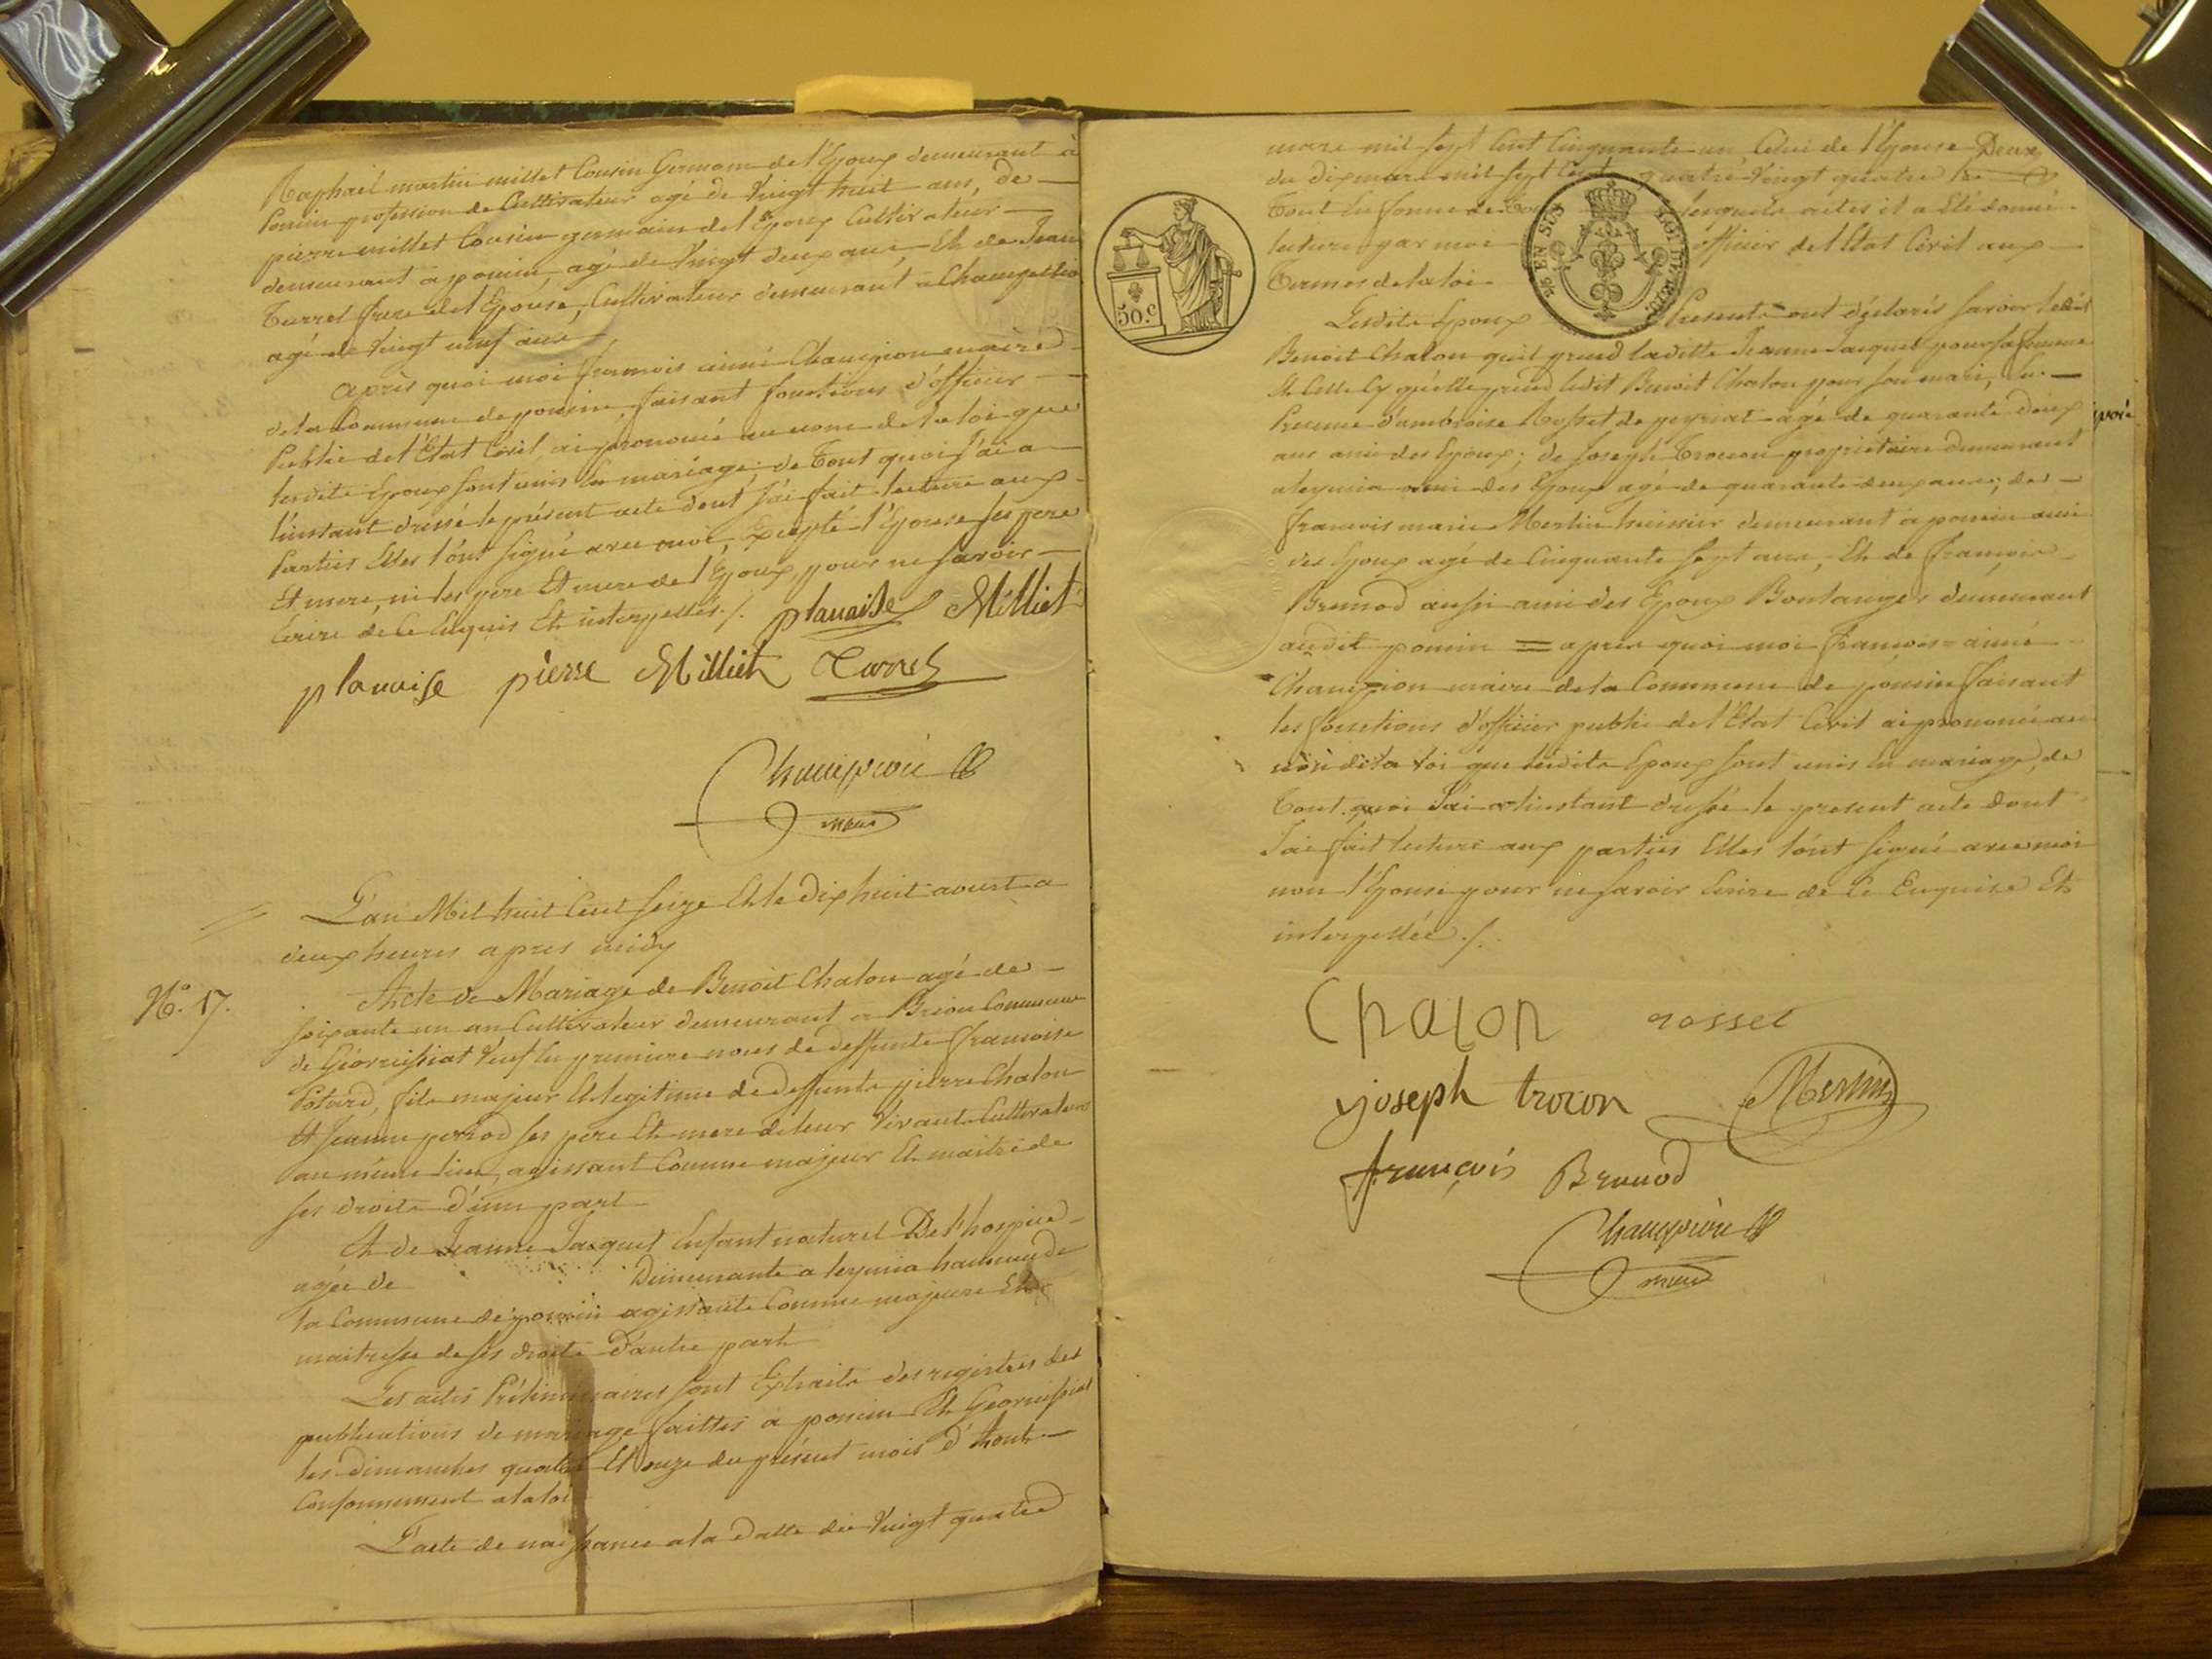 Raphaël martin millet Cousin Germain de l'Epoux demeurant à
Poncin profession de Cultivateur agé de Vingt huit ans, de
pierre millet Cousin germain de l'Epoux Cultivateur
demeurant a poncin, agé de Vingt deux ans, Et de Jean
Turrel frere de l'Epouse, Cultivateur demeurant a Champeillon
agé de Vingt neuf ans
Après quoi moi françois aimé Champion maire
de la Commune de poncin, faisant fonctions d'officier
Public de l'Etat Civil, ai prononcé au nom de la loi que
lesdits Epoux sont unis en mariage, de tout quoi J'ai a
l'instant dressé le présent acte dont j'ai fait lecture aux
Parties Elles l'ont signé avec moi, Excepté l'Epouse ses pere
Et mere, ni les pere Et mere de l'Epoux, pour ne savoir
Ecrire de Ce Enquis Et interpellés ./. planaise Milliet
planaise pierre Milliet Turrel
Champion
maire
L'an Mil huit Cent Seize Et le Dix huit aoust a
deux heures apres midy
No. 17. Acte de Mariage de Benoit Chalon agé de
soixante un an Cultivateur demeurant a Brion Commune
de Géovreissiat Veuf en premiere noces de deffunte francoise
Potard, fils majeur Et legitime de deffunts pierre Chalon
Et Jeanne perrod ses pere Et mere de leur Vivant Cultivateurs
au même lieu, agissant Comme majeur Et maitre de
ses droits d'une part
Et de Jeanne Jacquet Enfant naturel De l'hospice
agée de Demeurante a leymia hameau de
la Commune de poncin agissante Comme majeure Et
maitresse de ses droits d'autre part
Les actes Préliminaires sont Extraits des registres des
publications de mariage faittes a poncin Et Geovreissiat
les dimanches quatre Et onze du présent mois d'Aout
Conformement a la loi
L'acte de naissance a la datte du Vingt quatre
mars mil sept Cent Cinquante un Celui de l'Epouse Deux
du dix mars mil sept Cent quatre Vingt quatre
Tout en forme de desquels actes il a Eté donné
lecture par moi officier de l'Etat Civil aux
Termes de la loi
50.c
EN SUS
Lesdits Epoux Presents ont déclarés savoir ledit
Benoit Chalon quil prend laditte Jeanne Jacquet pour sa femme
Et Celle Cy qu'elle prend ledit Benoit Chalon pour son mari, En
Presence d'ambroise Rosset de peyriat agé de quarante deux
ans ami des Epoux; de Joseph Trocon proprietaire demeurant
a leymia ami des Epoux agé de quarante deux ans; de
francois marie Merlin huissier demeurant a poncin ami
des Epoux agé de Cinquante sept ans, Et de françois
Brunod aussi ami des Epoux Boulanger demeurant
audit poncin = après quoi moi francois aimé
Champion maire de la Commune de poncin faisant
les fonctions d'officier public de l'Etat Civil ai prononcé au
nom de la loi que lesdits Epoux sont unis en mariage, de
Tout quoi J'ai a l'instant dressé le present acte dont
J'ai fait lecture aux parties Elles l'ont signé avec moi
non l'Epouse pour ne savoir Ecrire de Ce Enquise Et
interpellée ./.
Chalon rosset
joseph trocon Merlin
françois Brunod
Champion
maire